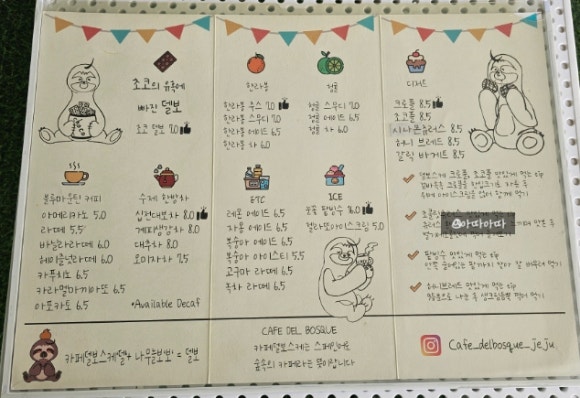 초코의 유혹에
빠진 델보
초코 델보 7.0
한라봉
한라봉 쥬스 7.0
한라봉 스무디 7.0
한라봉 에이드 6.5
한라봉 차 6.0
청귤
청귤 스무디 7.0
청귤 에이드 6.5
청귤 차 6.0
디저트
크로플 8.5
초코플 8.5
시나몬플러스 8.5
허니 브레드 8.5
갈릭 바게트 8.5
블루마운틴 커피
아메리카노 5.0
라떼 5.5
바닐라라떼 6.0
헤이즐넛라떼 6.0
카푸치노 6.5
카라멜마끼아또 6.5
아포가토 6.5
수제 한방차
십전대보차 8.0
계피생강차 8.0
대추차 8.0
오미자차 7.5
*Available Decaf
ETC
레몬 에이드 6.5
자몽 에이드 6.5
복숭아 에이드 6.5
복숭아 아이스티 5.5
고구마 라떼 6.5
녹차 라떼 6.5
ICE
팥빙수 16.0
젤라또아이스크림 5.0
아따아따
CAFE DEL BOSQUE
카페델보스케는 스페인어로
숲속의 카페라는 뜻이랍니다
카페델보스케'델'+ 나무늘보'보' = 델보
Cafe_delbosque_jeju